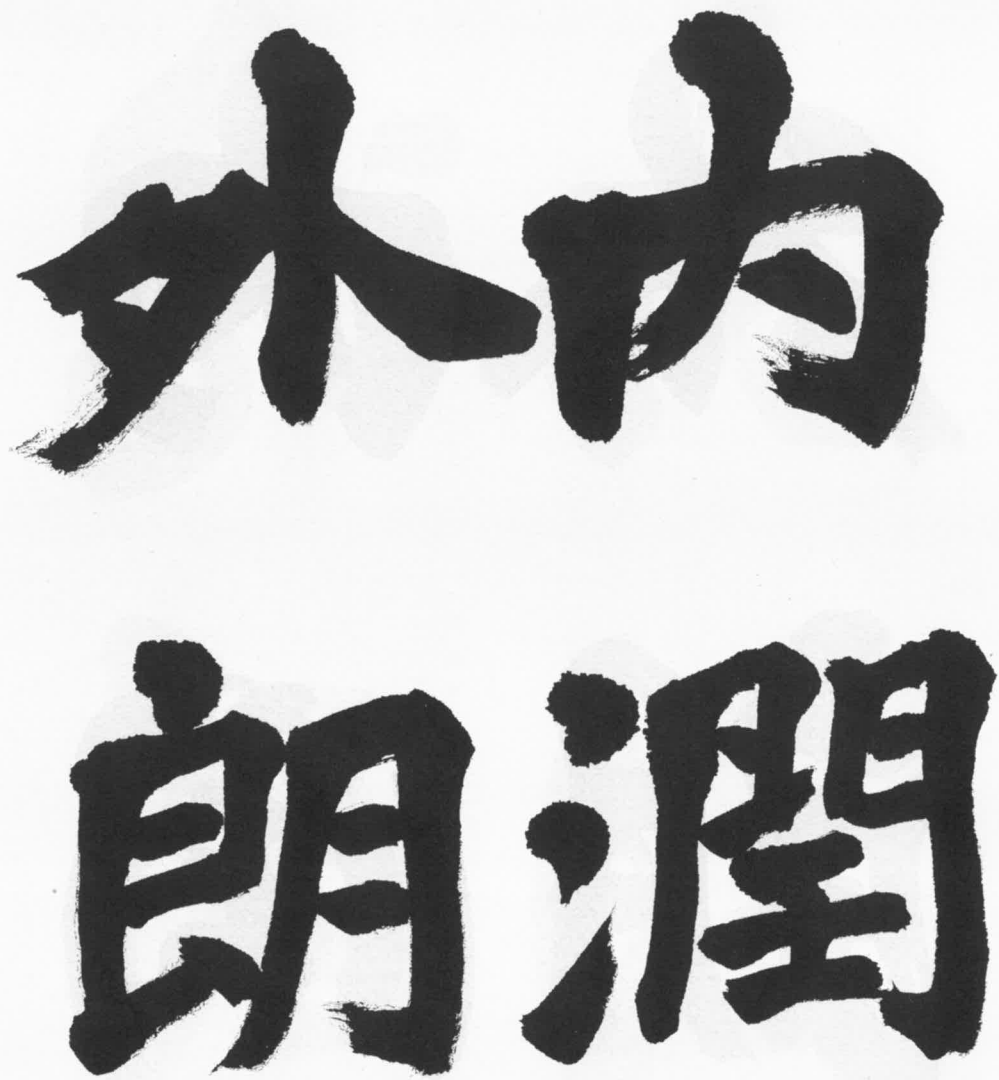 内潤
外朗